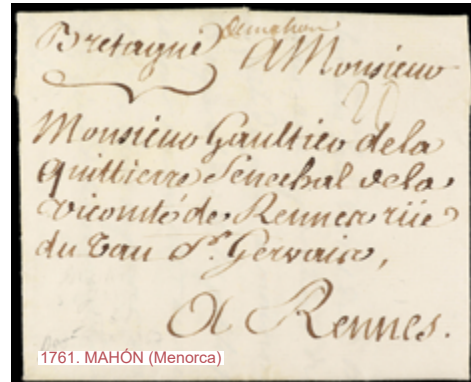 Bretagne
de mahon
A Monsieur
20
Monsieur Gaultier de la
Quittierre Senechal de la
vicomté de Rennes rüe
du Eau St. Gervais,
A Rennes.
1761. MAHÓN (Menorca)